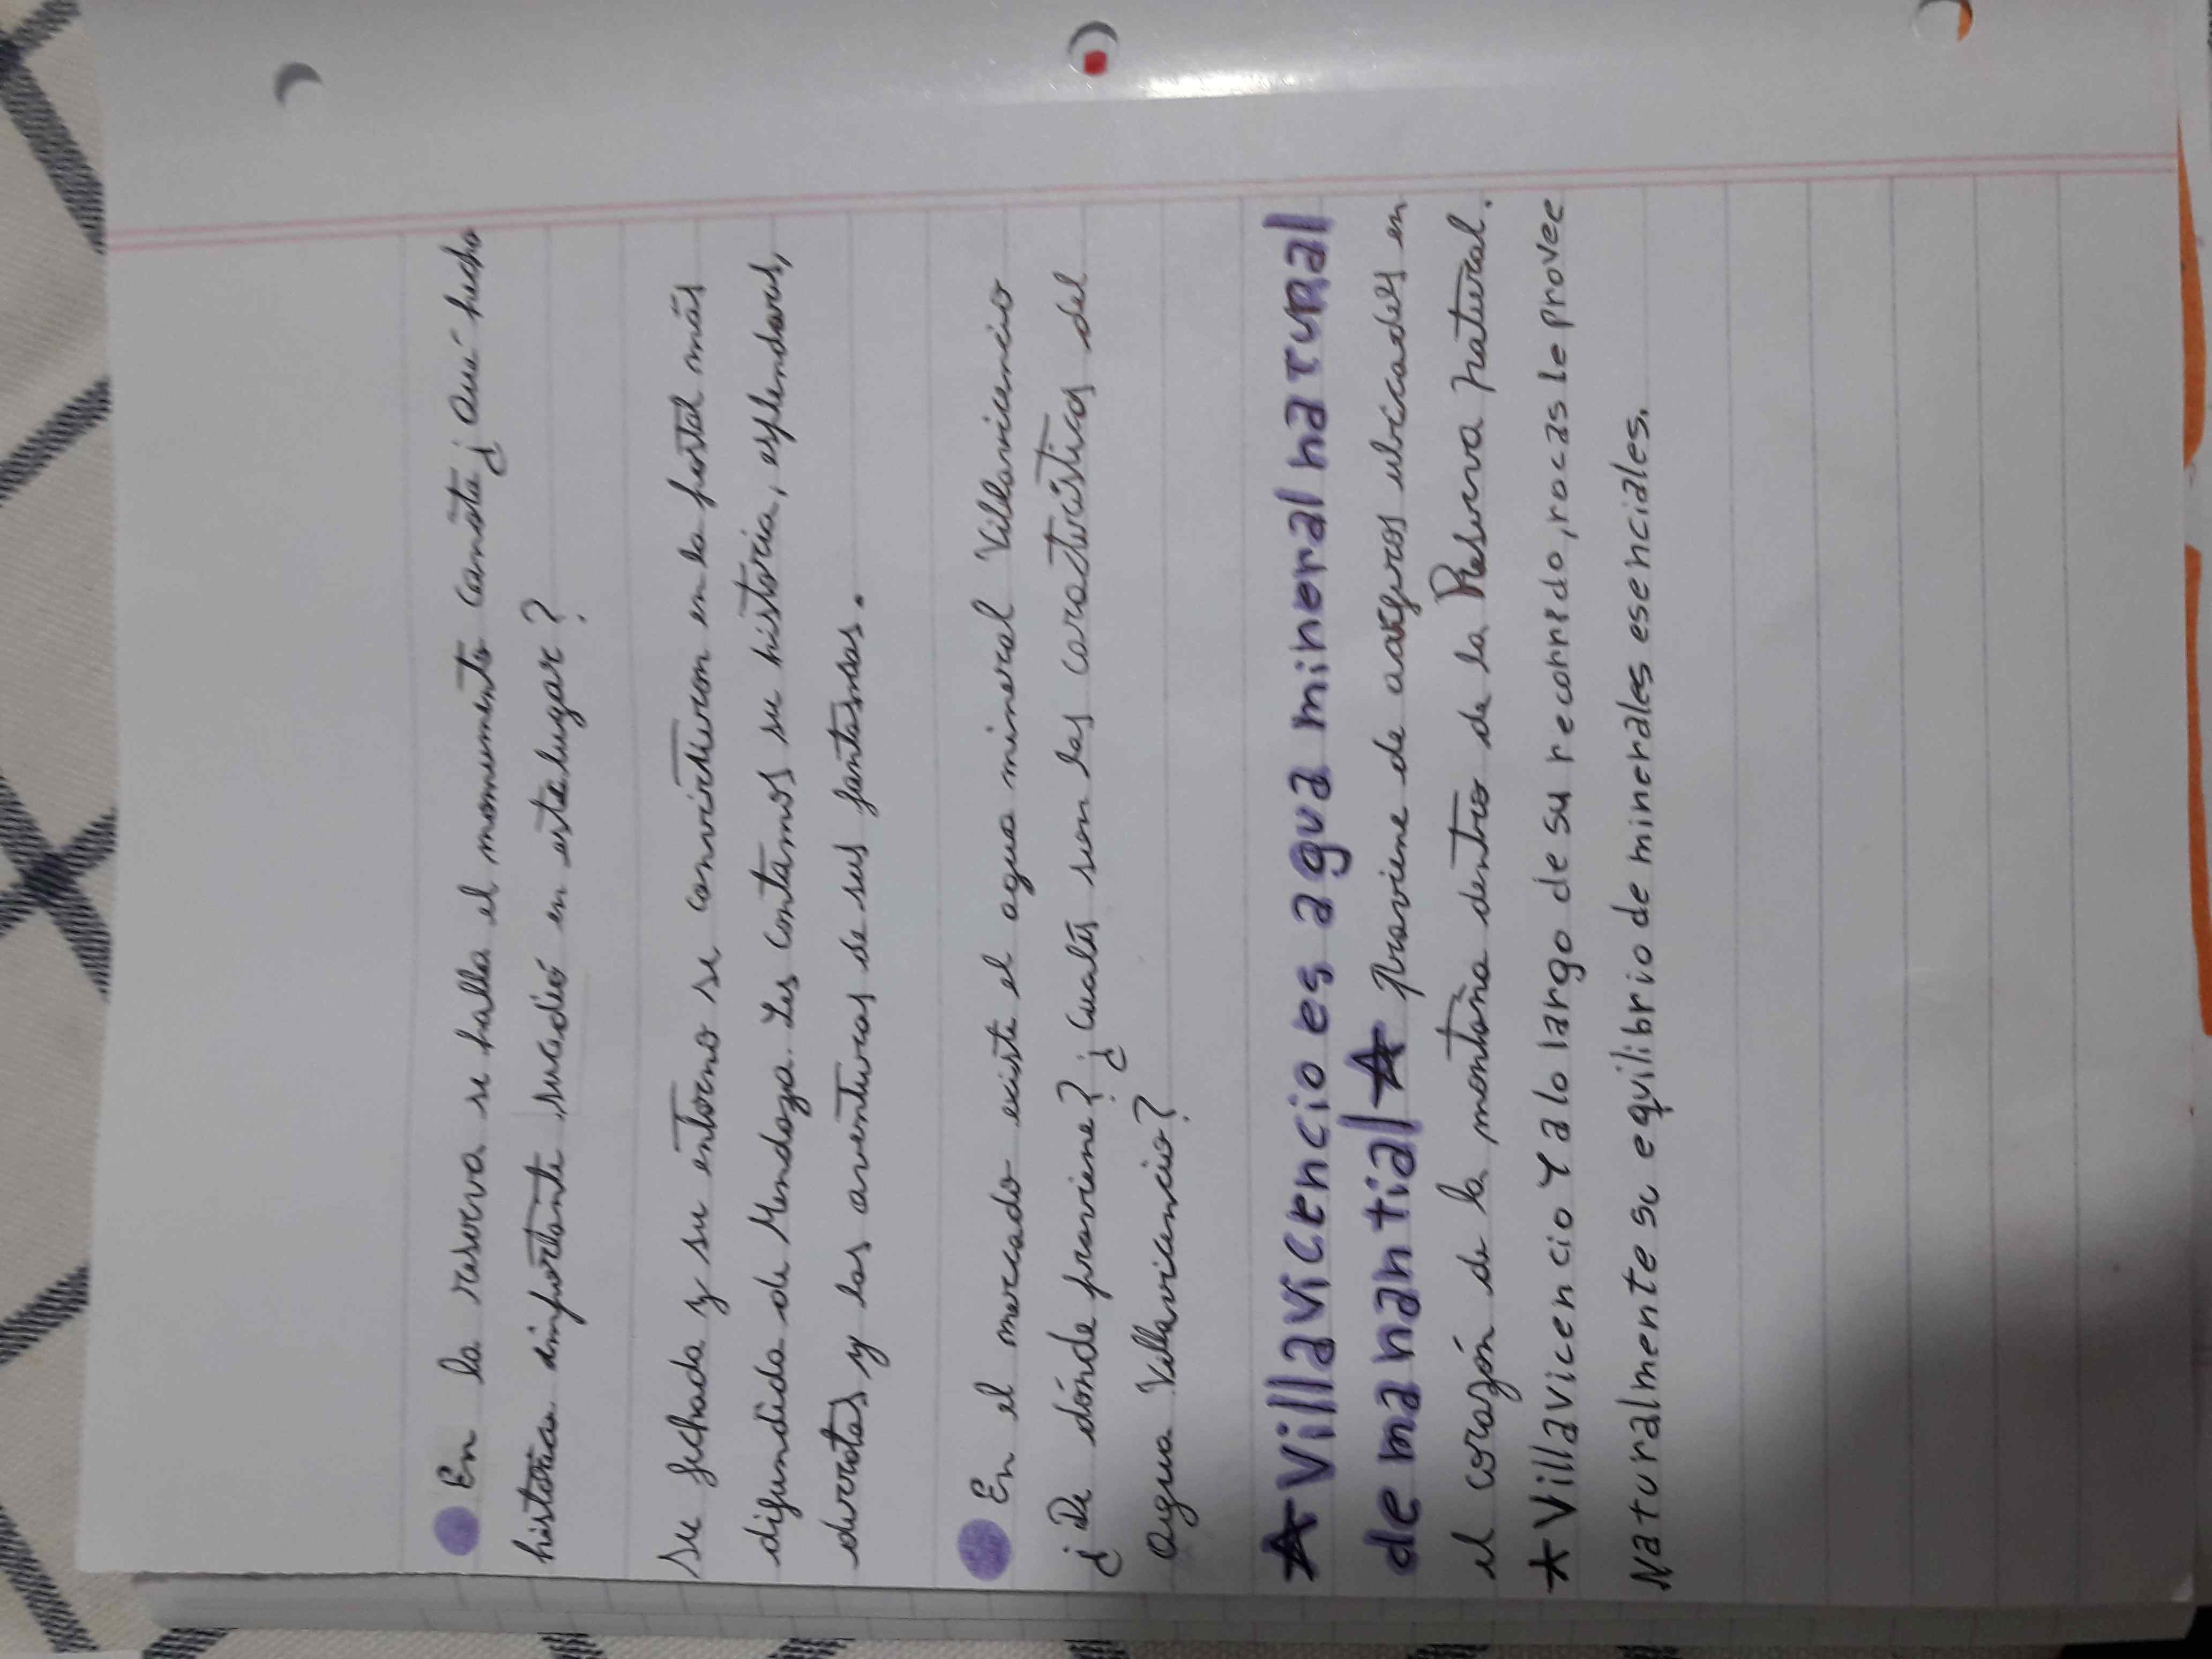 En la reserva se halla el monumento Canota ¿Qué hecho
histórico importante sucedió en este lugar?
su fachada y su entorno se convirtieron en la postal más
difundida de Mendoza. Les contamos su historia, esplendores,
derrotas y las aventuras de sus fantasmas.
En el mercado existe el agua mineral Villavicencio
¿De dónde proviene? ¿Cuales son las características del
agua Villavicencio?
Villavicencio es agua mineral natural
de manantial proviene de acuíferos ubicados en
el corazón de la montaña dentro de la Reserva natural.
Villavicencio Y a lo largo de su recorrido, rocas le provee
Naturalmente su equilibrio de minerales esenciales.